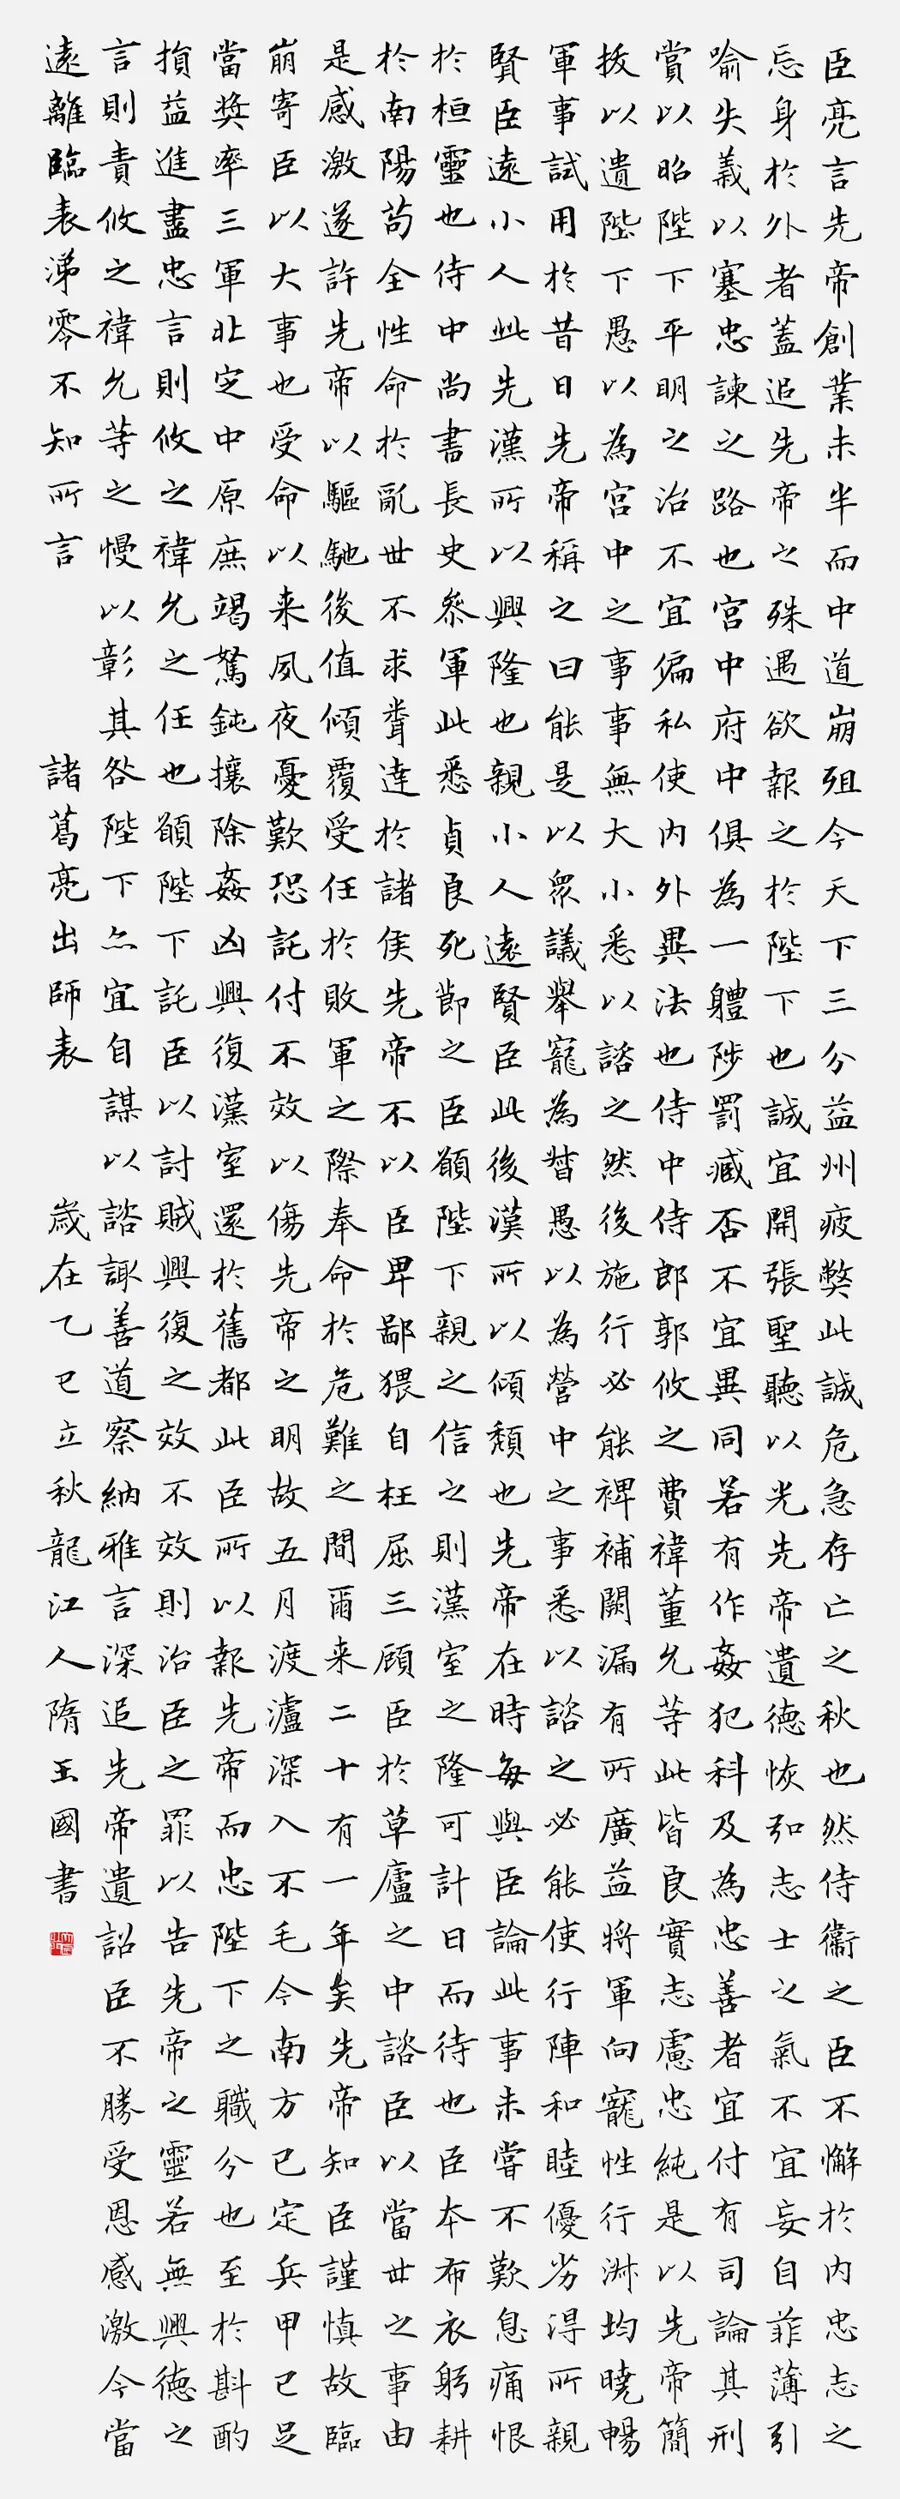 臣亮言先帝創業未半而中道崩殂今天下三分益州疲弊此誠危急存亡之秋也然侍衛之臣不懈於內忠志之
忘身於外者蓋追先帝之殊遇欲報之於陛下也誠宜開張聖聽以光先帝遺德恢弘志士之氣不宜妄自菲薄引
喻失義以塞忠諫之路也宮中府中俱為一體陟罰臧否不宜異同若有作姦犯科及為忠善者宜付有司論其刑
賞以昭陛下平明之治不宜偏私使內外異法也侍中侍郎郭攸之費禕董允等此皆良實志慮忠純是以先帝簡
拔以遺陛下愚以為宮中之事事無大小悉以諮之然後施行必能裨補闕漏有所廣益將軍向寵性行淑均曉暢
軍事試用於昔日先帝稱之曰能是以眾議舉寵為督愚以為營中之事悉以諮之必能使行陣和睦優劣得所親
賢臣遠小人此先漢所以興隆也親小人遠賢臣此後漢所以傾頹也先帝在時每與臣論此事未嘗不歎息痛恨
於桓靈也侍中尚書長史參軍此悉貞良死節之臣願陛下親之信之則漢室之隆可計日而待也臣本布衣躬耕
於南陽苟全性命於亂世不求聞達於諸侯先帝不以臣卑鄙猥自枉屈三顧臣於草廬之中諮臣以當世之事由
是感激遂許先帝以驅馳後值傾覆受任於敗軍之際奉命於危難之間爾来二十有一年矣先帝知臣謹慎故臨
崩寄臣以大事也受命以来夙夜憂歎恐託付不效以傷先帝之明故五月渡瀘深入不毛今南方已定兵甲已足
當奬率三軍北定中原庶竭駑鈍攘除姦凶興復漢室還於舊都此臣所以報先帝而忠陛下之職分也至於斟酌
損益進盡忠言則攸之禕允之任也願陛下託臣以討賊興復之效不效則治臣之罪以告先帝之靈若無興德之
言則責攸之禕允等之慢以彰其咎陛下亦宜自謀以諮諏善道察納雅言深追先帝遺詔臣不勝受恩感激今當
遠離臨表涕零不知所言 諸葛亮出師表 歲在乙巳立秋龍江人隋玉國書